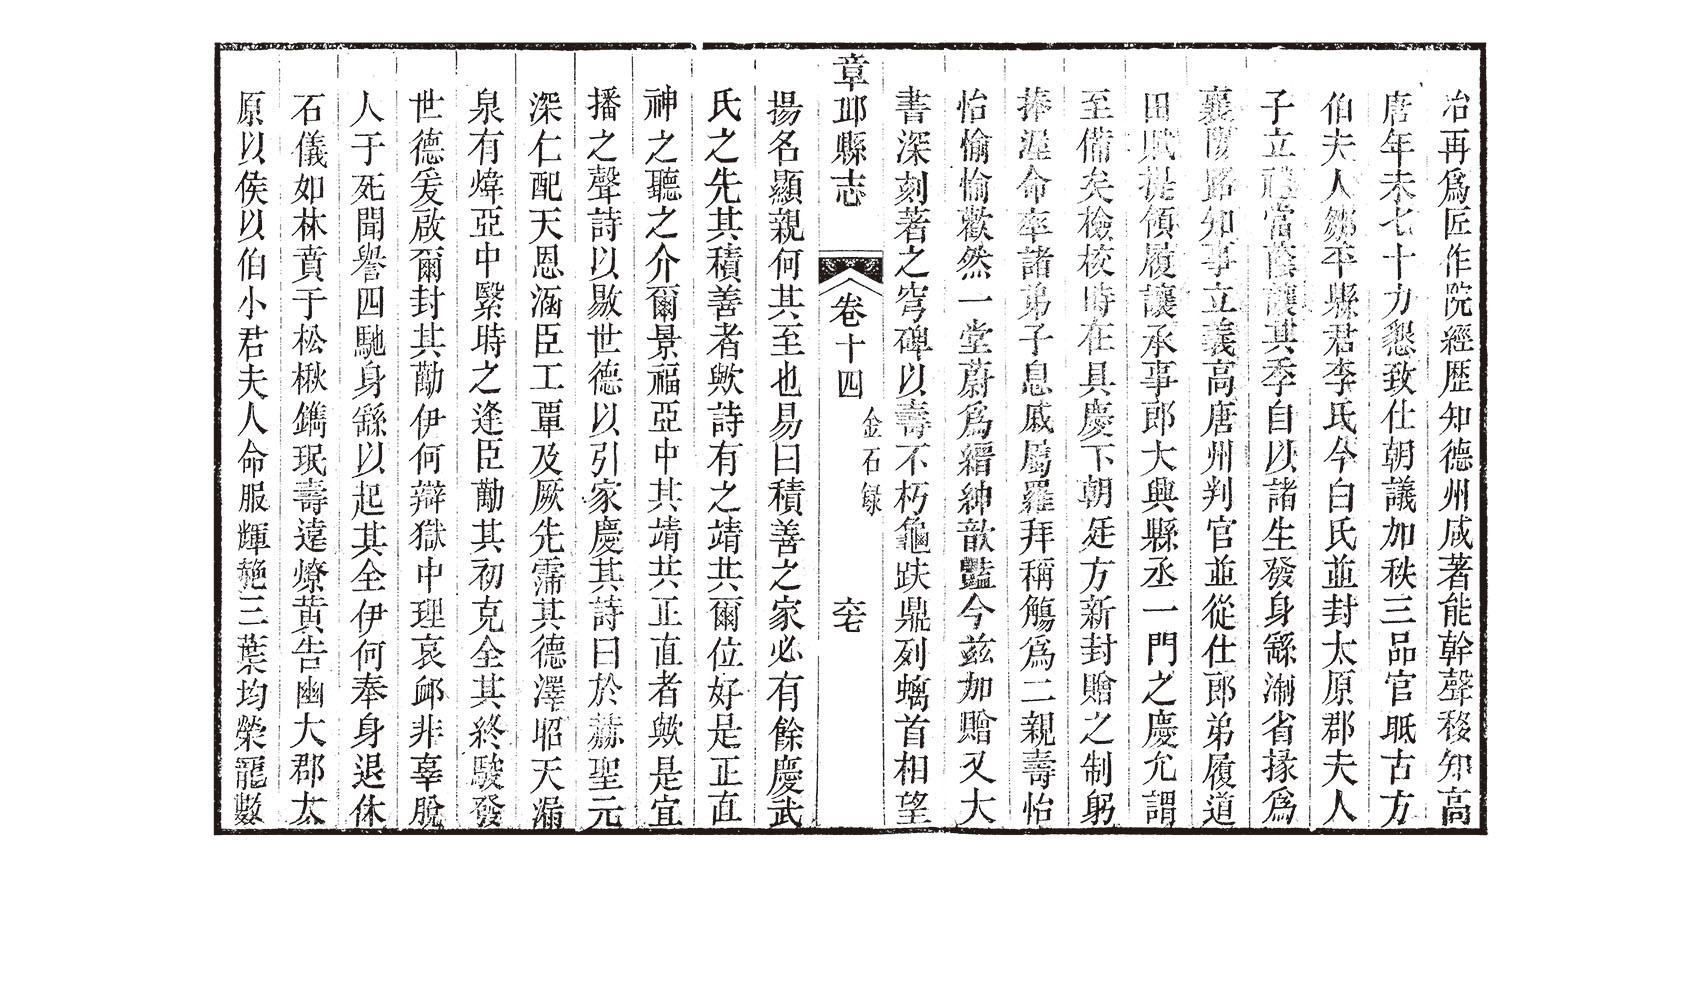 冶再爲匠作院經歷知德州咸著能幹聲移知高
唐年未七十力懇致仕朝議加秩三品官眂古方
伯夫人鄒平縣君李氏今白氏並封太原郡夫人
子立禮當蔭讓其季自以諸生發身繇淛省掾爲
襄陽路知事立義高唐州判官並從仕郎弟履道
田賦提領履讓承事郎大興縣丞一門之慶尤謂
至備矣檢校時在具慶下朝廷方新封贈之制躬
捧渥命率諸弟子息戚屬羅拜稱觴爲二親壽怡
怡愉愉歡然一堂蔚爲縉紳歆豔今兹加贈又大
書深刻著之穹碑以壽不朽龜趺鼎列螭首相望
章邱縣志
卷十四
金石録
六七
揚名顯親何其至也易曰積善之家必有餘慶武
氏之先其積善者歟詩有之靖共爾位好是正直
神之聽之介爾景福亞中其靖共正直者歟是宜
播之聲詩以敭世德以引家慶其詩曰於赫聖元
深仁配天恩涵臣工覃及厥先霈其德澤昭天漏
泉有煒亞中緊時之逢臣勩其初克全其終駿發
世德爰啟爾封其勩伊何辯獄中理哀卹非辜脫
人于死聞譽四馳身繇以起其全伊何奉身退休
石儀如林賁于松楸鐫珉壽遠燎黃告幽大郡太
原以侯以伯小君夫人命服輝艴三葉均榮寵數